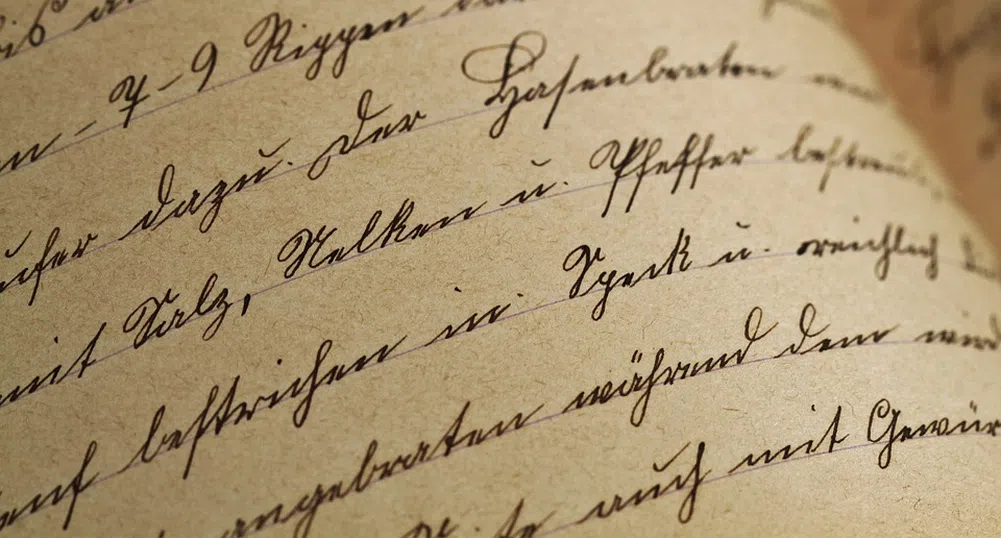 bis
- 7-9 Rippen
dazu. Der Hasenbraten
mit Salz, Nelken u. Pfeffer
bestrichen in Speck u. reichlich
angebraten während dem wird
auch mit Gewür